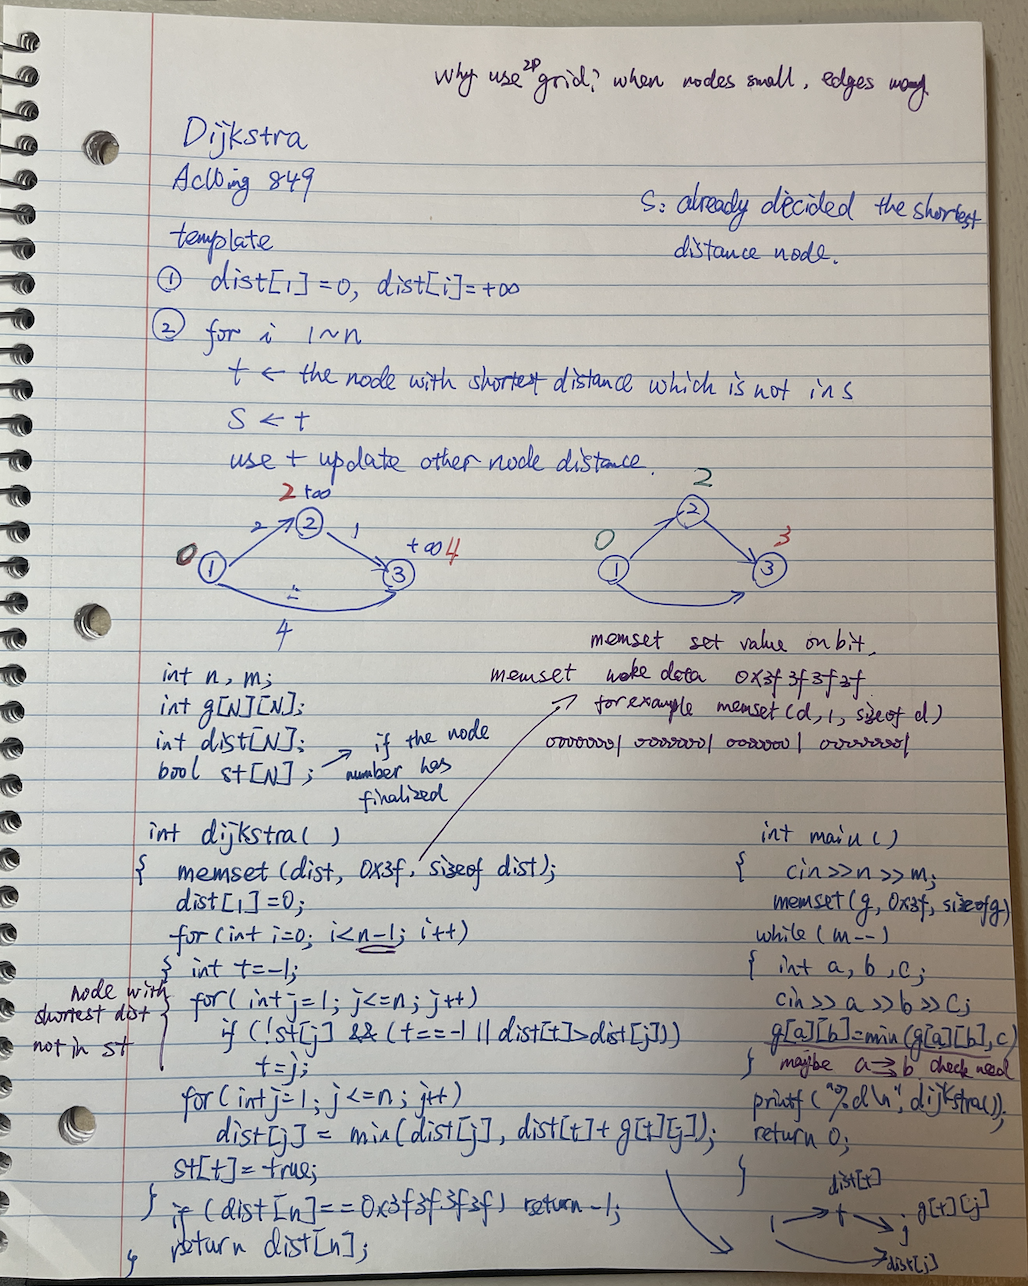 Why use 2D grid? when nodes small, edges many
Dijkstra
AcWing 849
S: already decided the shortest
distance node.
template
① dist[1]=0, dist[i]=+∞
② for i 1~n
t ← the node with shortest distance which is not in s
S ← t
use t update other node distance.
2 +∞
2
2
2
1
0
1
+∞ 4
3
4
2
0
1
3
3
memset set value on bit.
memset make data 0x3f3f3f3f
for example memset(d, 1, sizeof d)
00000001 00000001 0000001 00000001
int n, m;
int g[N][N];
int dist[N];
bool st[N];
if the node
number has
finalized
int dijkstra()
{ memset(dist, 0x3f, sizeof dist);
dist[1]=0;
for(int i=0; i<n-1; i++)
{ int t=-1;
node with
shortest dist
not in st
for(int j=1; j<=n; j++)
if (!st[j] && (t==-1 || dist[t]>dist[j]))
t=j;
for(int j=1; j<=n; j++)
dist[j] = min(dist[j], dist[t]+g[t][j]);
st[t]=true;
}
if (dist[n]==0x3f3f3f3f) return -1;
return dist[n];
}
int main()
{ cin>>n>>m;
memset(g, 0x3f, sizeof g)
while(m--)
{ int a, b, c;
cin>>a>>b>>c;
g[a][b]=min(g[a][b],c)
} maybe a→b check need
printf("%d\n", dijkstra());
return 0;
}
dist[t]
1 t j g[t][j]
dist[j]